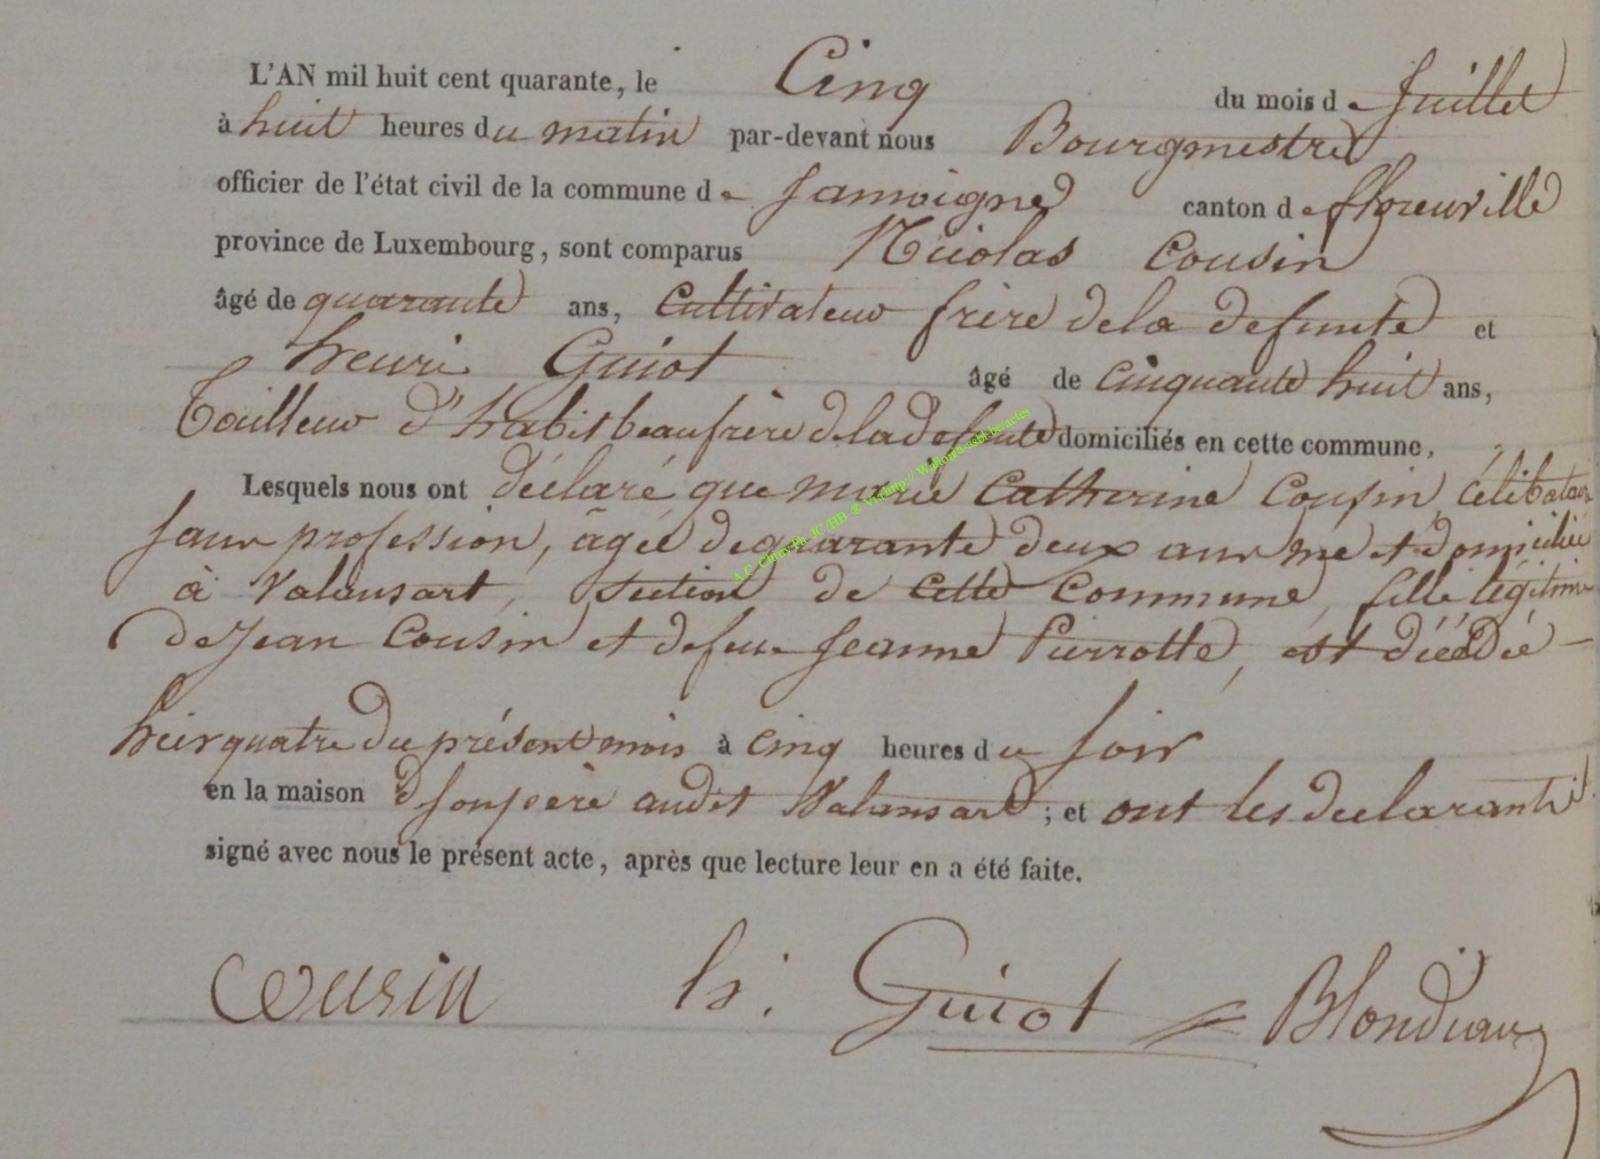 L'AN mil huit cent quarante, le Cinq du mois de Juillet
à huit heures du matin par-devant nous Bourgmestre
officier de l'état civil de la commune de Jamoigne canton de florenville
province de Luxembourg, sont comparus Nicolas Cousin
âgé de quarante ans, Cultivateur frère de la defunte et
henri Guiot âgé de cinquante huit ans,
Tailleur d'habit beaufrère de la defunte domiciliés en cette commune,
Lesquels nous ont déclaré que marie Catherine Cousin, célibataire
sans profession, âgée de quarante deux ans née et domiciliée
à Valansart, section de cette Commune, fille légitime
de Jean Cousin et defeue Jeanne Pierrotte, est décédée
hier quatre du présent mois à cinq heures du soir
en la maison d son père audit Valansart; et ont les declarants
signé avec nous le présent acte, après que lecture leur en a été faite.
Cousin h. Guiot Blondiaux